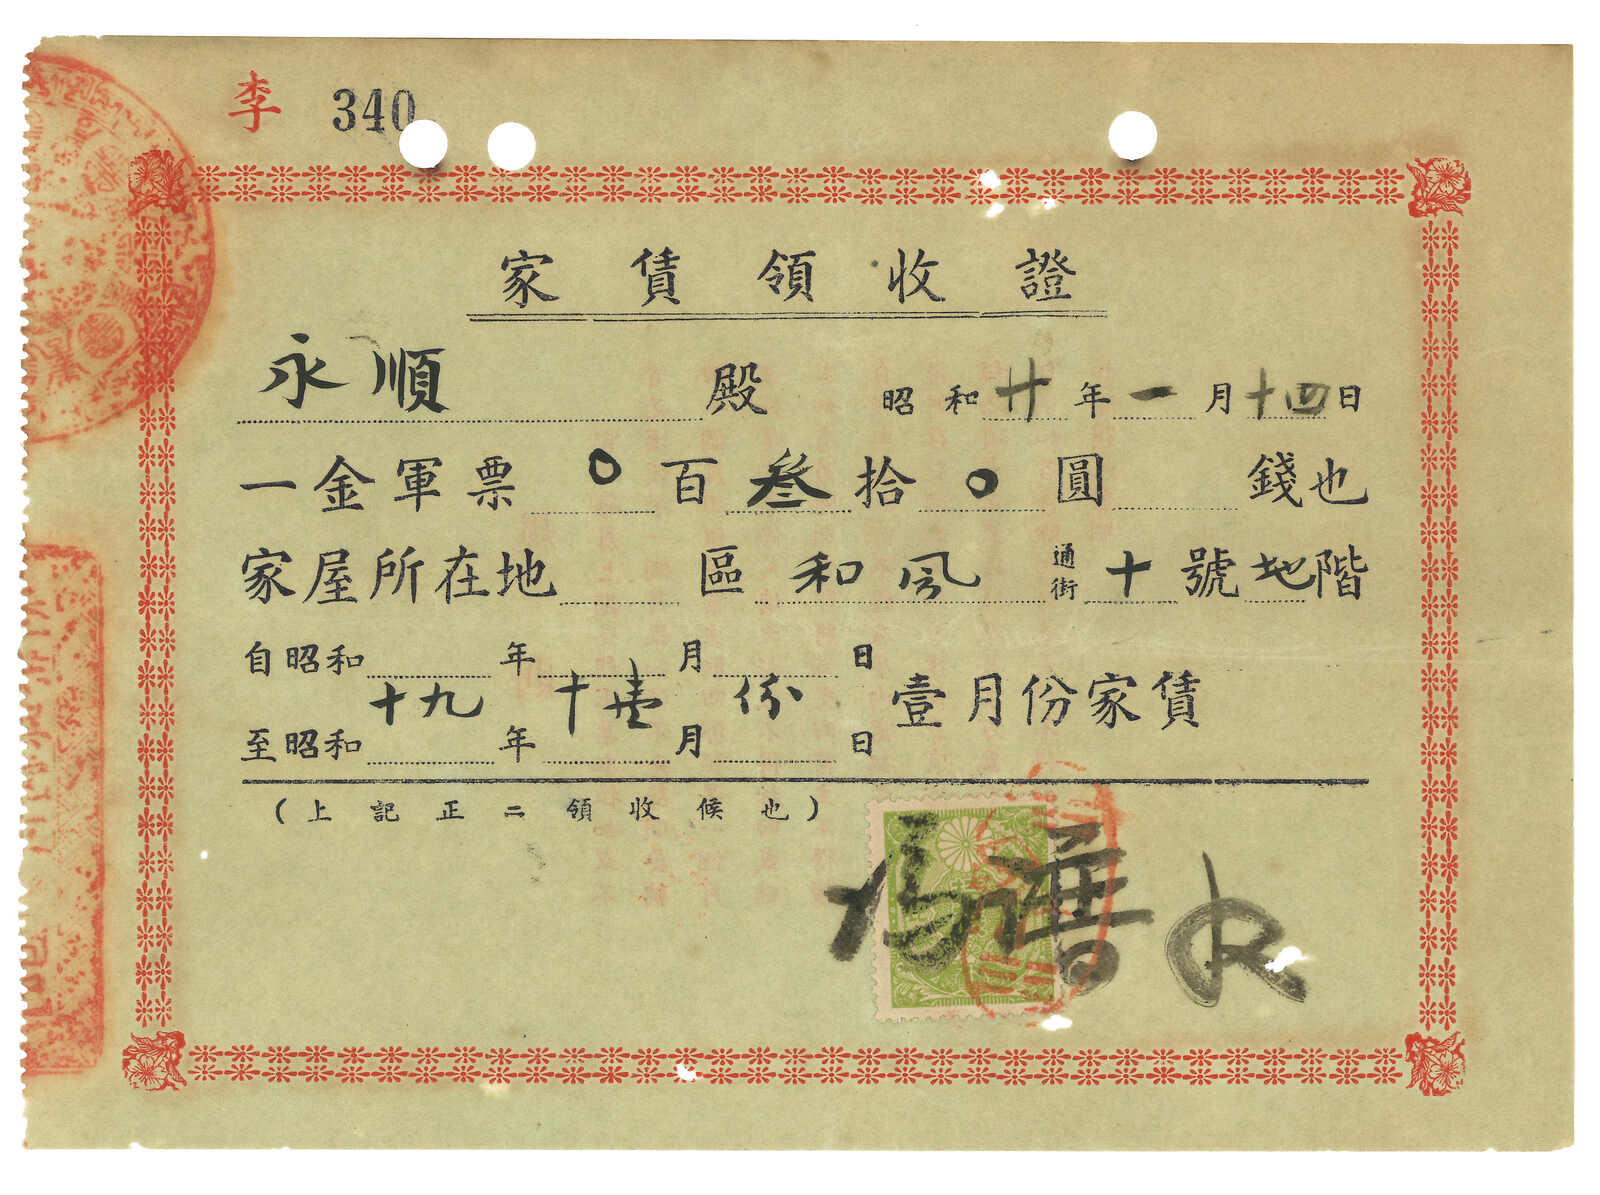 李 340
家賃領收證
永順 殿 昭和廿年一月十四日
一金軍票〇百叁拾〇圓 錢也
家屋所在地 區和风通街十號地階
自昭和 年 月 日
十九 十壹 份 壹月份家賃
至昭和 年 月 日
(上記正ニ領收候也)